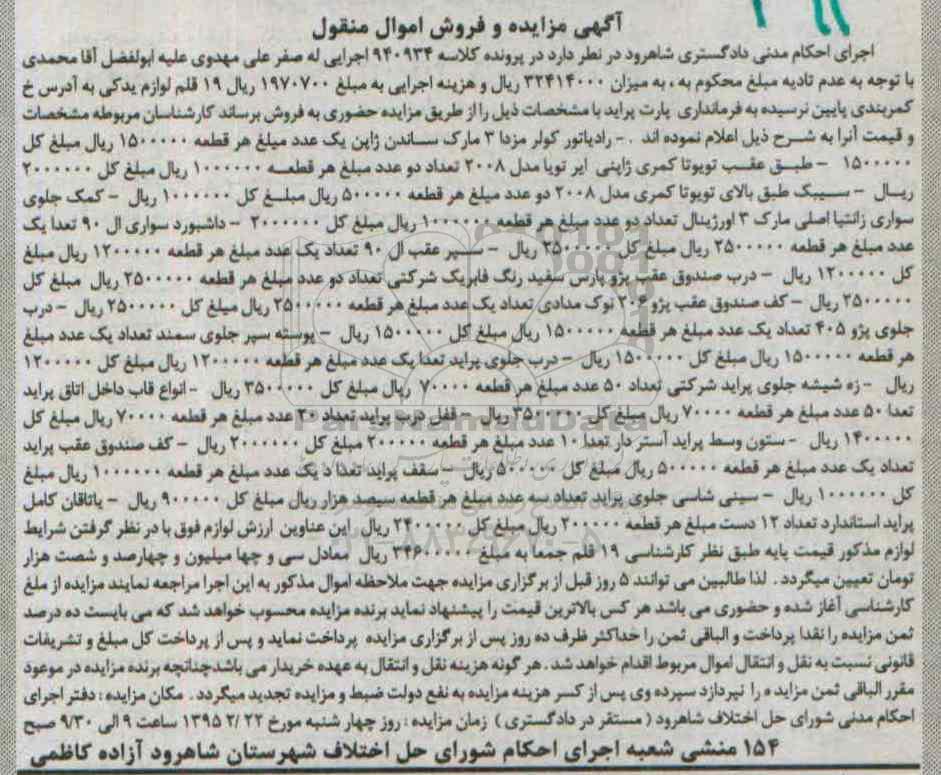 آگهی مزایده و فروش اموال منقول
اجرای احکام مدنی دادگستری شاهرود در نظر دارد در پرونده کلاسه ۹۴۰۹۳۴ اجرایی له صفر علی مهدوی علیه ابولفضل آقا محمدی
با توجه به عدم تادیه مبلغ محکوم به ، به میزان ۳۲۴۱۴۰۰۰ ریال و هزینه اجرایی به مبلغ ۱۹۷۰۷۰۰ ریال ۱۹ قلم لوازم یدکی به آدرس خ
کمربندی پایین نرسیده به فرمانداری پارت پراید با مشخصات ذیل را از طریق مزایده حضوری به فروش برساند کارشناسان مربوطه مشخصات
و قیمت آنرا به شرح ذیل اعلام نموده اند . - رادیاتور کولر مزدا ۳ مارک ساندن ژاپن یک عدد میلغ هر قطعه ۱۵۰۰۰۰۰ ریال مبلغ کل
۱۵۰۰۰۰۰ - طبق عقب تویوتا کمری ژاپنی ایر تویا مدل ۲۰۰۸ تعداد دو عدد مبلغ هر قطعه ۱۰۰۰۰۰۰ ریال مبلغ کل ۲۰۰۰۰۰۰
ریال - سیبک طبق بالای تویوتا کمری مدل ۲۰۰۸ دو عدد مبلغ هر قطعه ۵۰۰۰۰۰ ریال مبلغ کل ۱۰۰۰۰۰۰ ریال - کمک جلوی
سواری زانتیا اصلی مارک ۳ اورژینال تعداد دو عدد مبلغ هر قطعه ۱۰۰۰۰۰۰ ریال مبلغ کل ۲۰۰۰۰۰۰ - داشبورد سواری ال ۹۰ تعدا یک
عدد مبلغ هر قطعه ۲۵۰۰۰۰۰ ریال مبلغ کل ۲۵۰۰۰۰۰ ریال - سپر عقب ال ۹۰ تعداد یک عدد مبلغ هر قطعه ۱۲۰۰۰۰۰ ریال مبلغ
کل ۱۲۰۰۰۰۰ ریال - درب صندوق عقب پژو پارس سفید رنگ فابریک شرکتی تعداد دو عدد مبلغ هر قطعه ۲۵۰۰۰۰۰ ریال مبلغ کل
۲۵۰۰۰۰۰ ریال - کف صندوق عقب پژو ۲۰۶ نوک مدادی تعداد یک عدد مبلغ هر قطعه ۲۵۰۰۰۰۰ ریال مبلغ کل ۲۵۰۰۰۰۰ ریال - درب
جلوی پژو ۴۰۵ تعداد یک عدد مبلغ هر قطعه ۱۵۰۰۰۰۰ ریال مبلغ کل ۱۵۰۰۰۰۰ ریال - پوسته سپر جلوی سمند تعداد یک عدد مبلغ
هر قطعه ۱۵۰۰۰۰۰ ریال مبلغ کل ۱۵۰۰۰۰۰ ریال - درب جلوی پراید تعدا یک عدد مبلغ هر قطعه ۱۲۰۰۰۰۰ ریال مبلغ کل ۱۲۰۰۰۰۰
ریال - زه شیشه جلوی پراید شرکتی تعداد ۵۰ عدد مبلغ هر قطعه ۷۰۰۰۰ ریال مبلغ کل ۳۵۰۰۰۰۰ ریال - انواع قاب داخل اتاق پراید
تعدا ۵۰ عدد مبلغ هر قطعه ۷۰۰۰۰ ریال مبلغ کل ۳۵۰۰۰۰۰ ریال - قفل درب پراید تعداد ۲۰ عدد مبلغ هر قطعه ۷۰۰۰۰ ریال مبلغ کل
۱۴۰۰۰۰۰ ریال - ستون وسط پراید آستر دار تعدا ۱۰ عدد مبلغ هر قطعه ۲۰۰۰۰۰ مبلغ کل ۲۰۰۰۰۰۰ ریال - کف صندوق عقب پراید
تعداد یک عدد مبلغ هر قطعه ۵۰۰۰۰۰ ریال مبلغ کل ۵۰۰۰۰۰ ریال - سقف پراید تعداد یک عدد مبلغ هر قطعه ۱۰۰۰۰۰۰ ریال مبلغ
کل ۱۰۰۰۰۰۰ ریال - سینی شاسی جلوی پراید تعداد سه عدد مبلغ هر قطعه سیصد هزار ریال مبلغ کل ۹۰۰۰۰۰ ریال - یاتاقان کامل
پراید استاندارد تعداد ۱۲ دست مبلغ هر قطعه ۲۰۰۰۰۰ ریال مبلغ کل ۲۴۰۰۰۰۰ ریال این عناوین ارزش لوازم فوق با در نظر گرفتن شرایط
لوازم مذکور قیمت پایه طبق نظر کارشناسی ۱۹ قلم جمعا به مبلغ ۳۴۶۰۰۰۰۰ ریال معادل سی و چها میلیون و چهارصد و شصت هزار
تومان تعیین میگردد . لذا طالبین می توانند ۵ روز قبل از برگزاری مزایده جهت ملاحظه اموال مذکور به این اجرا مراجعه نمایند مزایده از ملغ
کارشناسی آغاز شده و حضوری می باشد هر کس بالاترین قیمت را پیشنهاد نماید برنده مزایده محسوب خواهد شد که می بایست ده درصد
ثمن مزایده را نقدا پرداخت و الباقی ثمن را حداکثر ظرف ده روز پس از برگزاری مزایده پرداخت نماید و پس از پرداخت کل مبلغ و تشریفات
قانونی نسبت به نقل و انتقال اموال مربوط اقدام خواهد شد . هر گونه هزینه نقل و انتقال به عهده خریدار می باشدچنانچه برنده مزایده در موعود
مقرر الباقی ثمن مزایده را نپردازد سپرده وی پس از کسر هزینه مزایده به نفع دولت ضبط و مزایده تجدید میگردد . مکان مزایده : دفتر اجرای
احکام مدنی شورای حل اختلاف شاهرود ( مستقر در دادگستری ) زمان مزایده : روز چهار شنبه مورخ ۱۳۹۵ /۲/ ۲۲ ساعت ۹ الی ۹/۳۰ صبح
۱۵۴ منشی شعبه اجرای احکام شورای حل اختلاف شهرستان شاهرود آزاده کاظمی